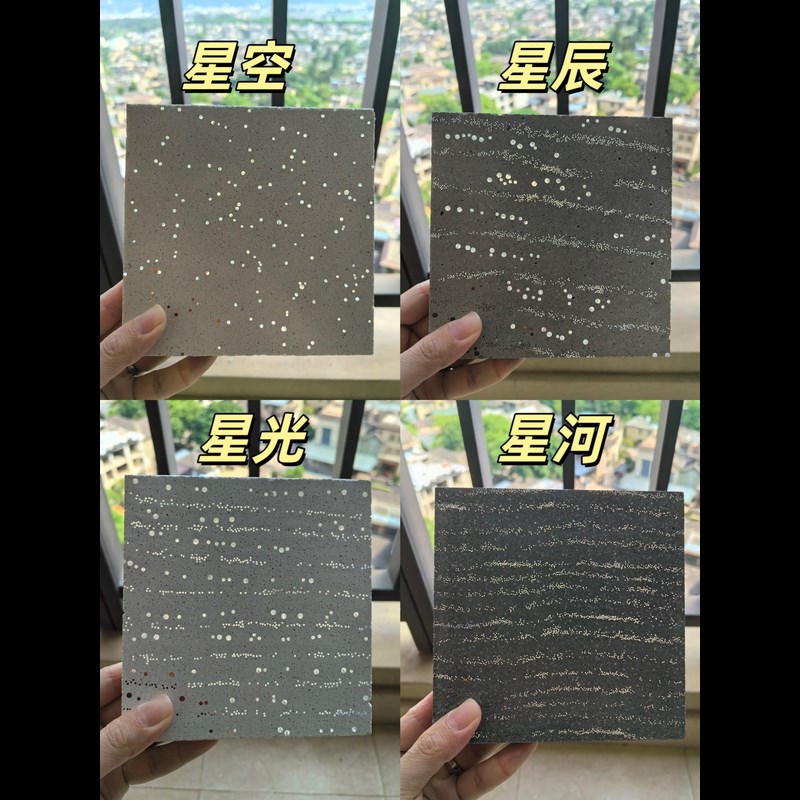 星空
星辰
星光
星河